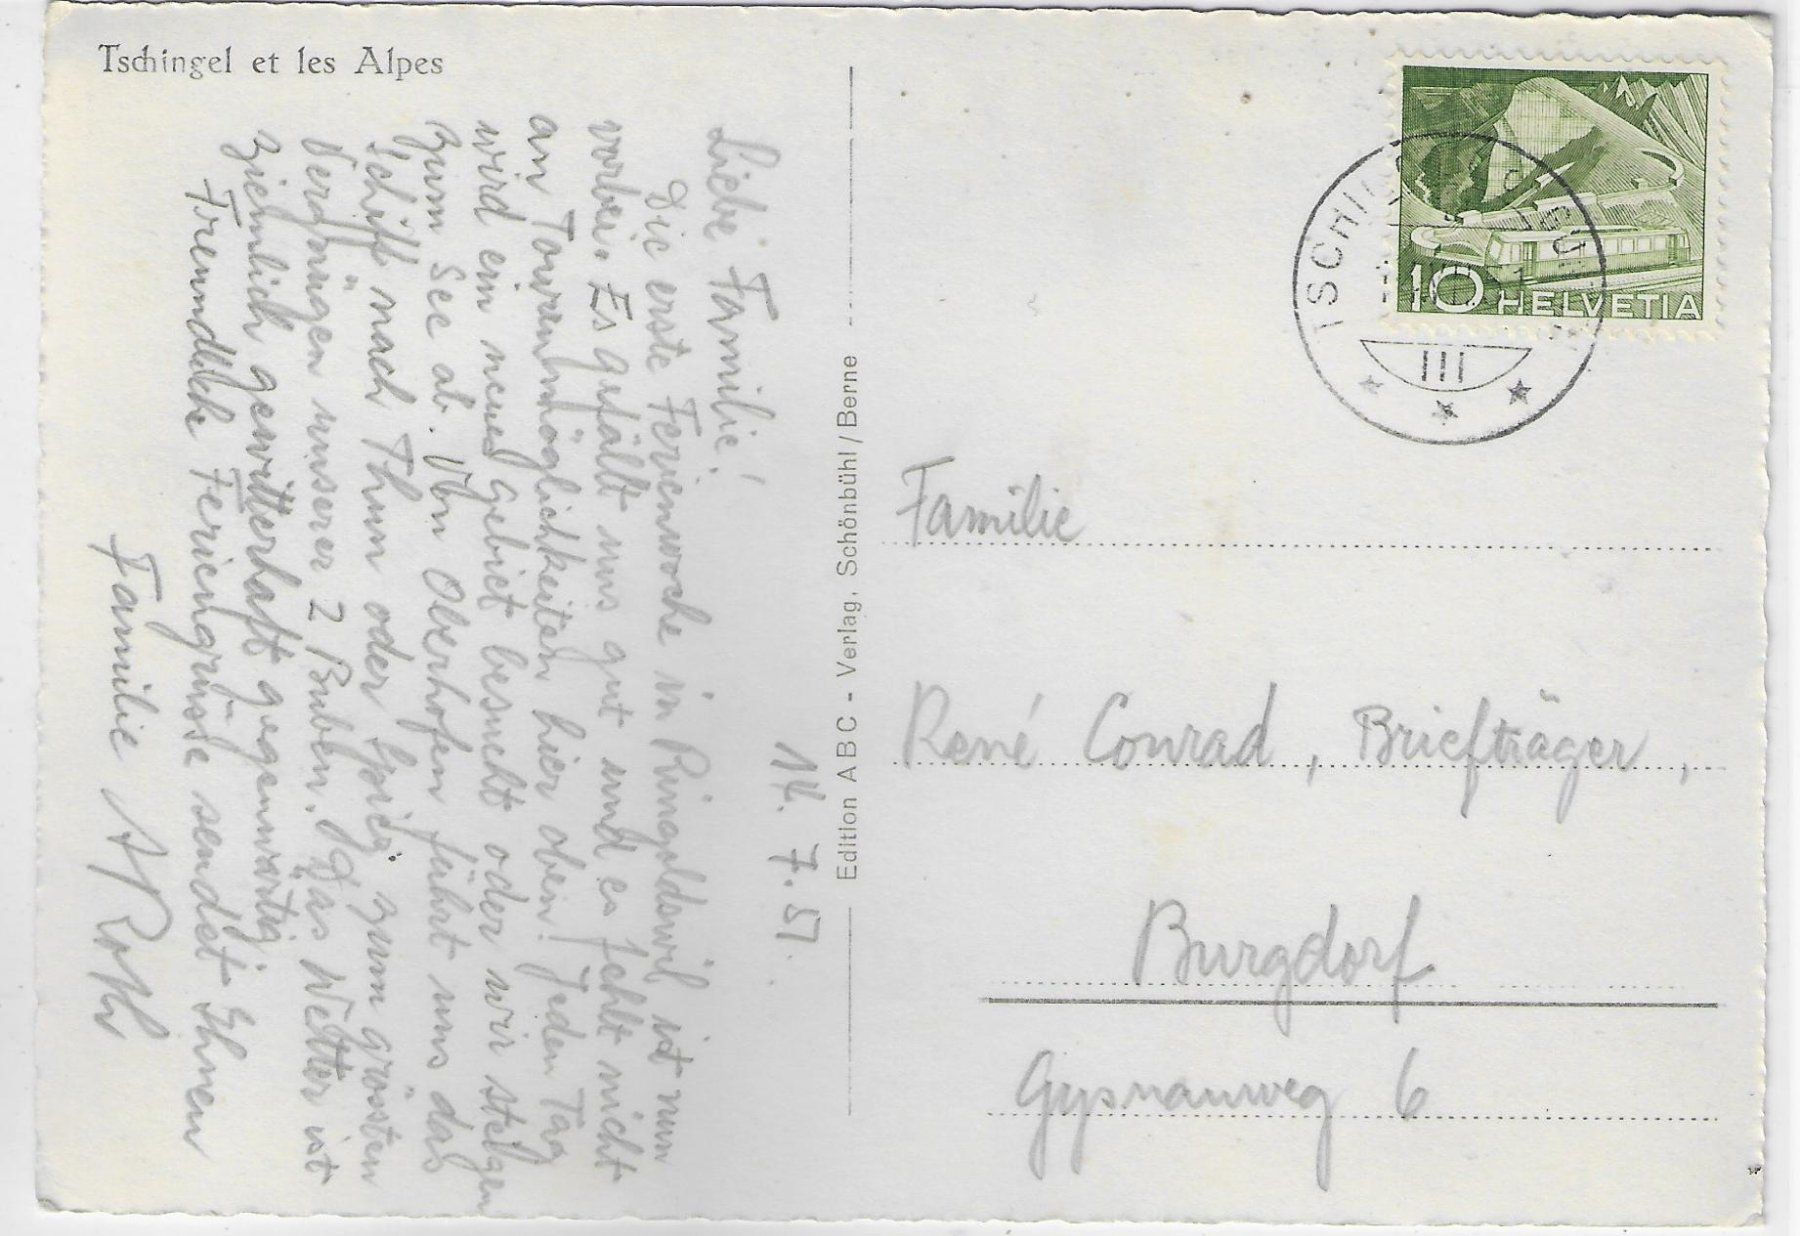 Tschingel et les Alpes
14. 7. 51.
Liebe Familie!
Die erste Ferienwoche in Ringoldswil ist nun
vorbei. Es gefällt uns gut und es fehlt nicht
an Tourenmöglichkeiten hier oben! Jeden Tag
wird ein neues Gebiet besucht oder wir steigen
zum See ab. Von Oberhofen führt uns das
Schiff nach Thun oder Spiez zum grössten
Vergnügen unserer 2 Buben. Das Wetter ist
ziemlich gewitterhaft gegenwärtig
Freundliche Feriengrüsse sendet Ihnen
Familie A Roth
Edition ABC - Verlag, Schönbühl / Berne
10 HELVETIA
III
Familie
René Conrad, Briefträger,
Burgdorf
Gysnauweg 6